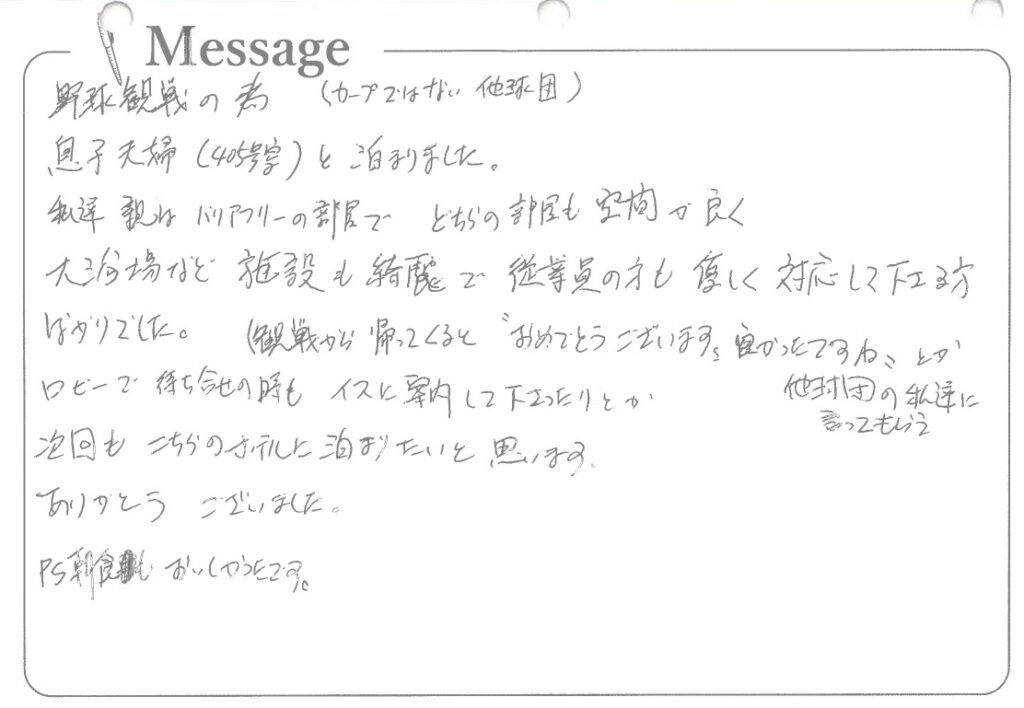 Message
野球観戦の為 (カープではない 他球団)
息子夫婦(405号室)と 泊まりました。
私達 親は バリアフリーの部屋で どちらの部屋も 空間が 良く
大浴場など 施設も 綺麗で 従業員の方も 優しく 対応して下さる方
ばかりでした。 (観戦から 帰ってくると "おめでとうございます。良かったですね" とか
他球団の私達に
言ってもらう
ロビーで 待ち合せの時も イスに 案内して下さったりとか
次回も こちらのホテルに 泊まりたいと 思います。
ありがとう ございました。
PS 朝食も おいしかったです。